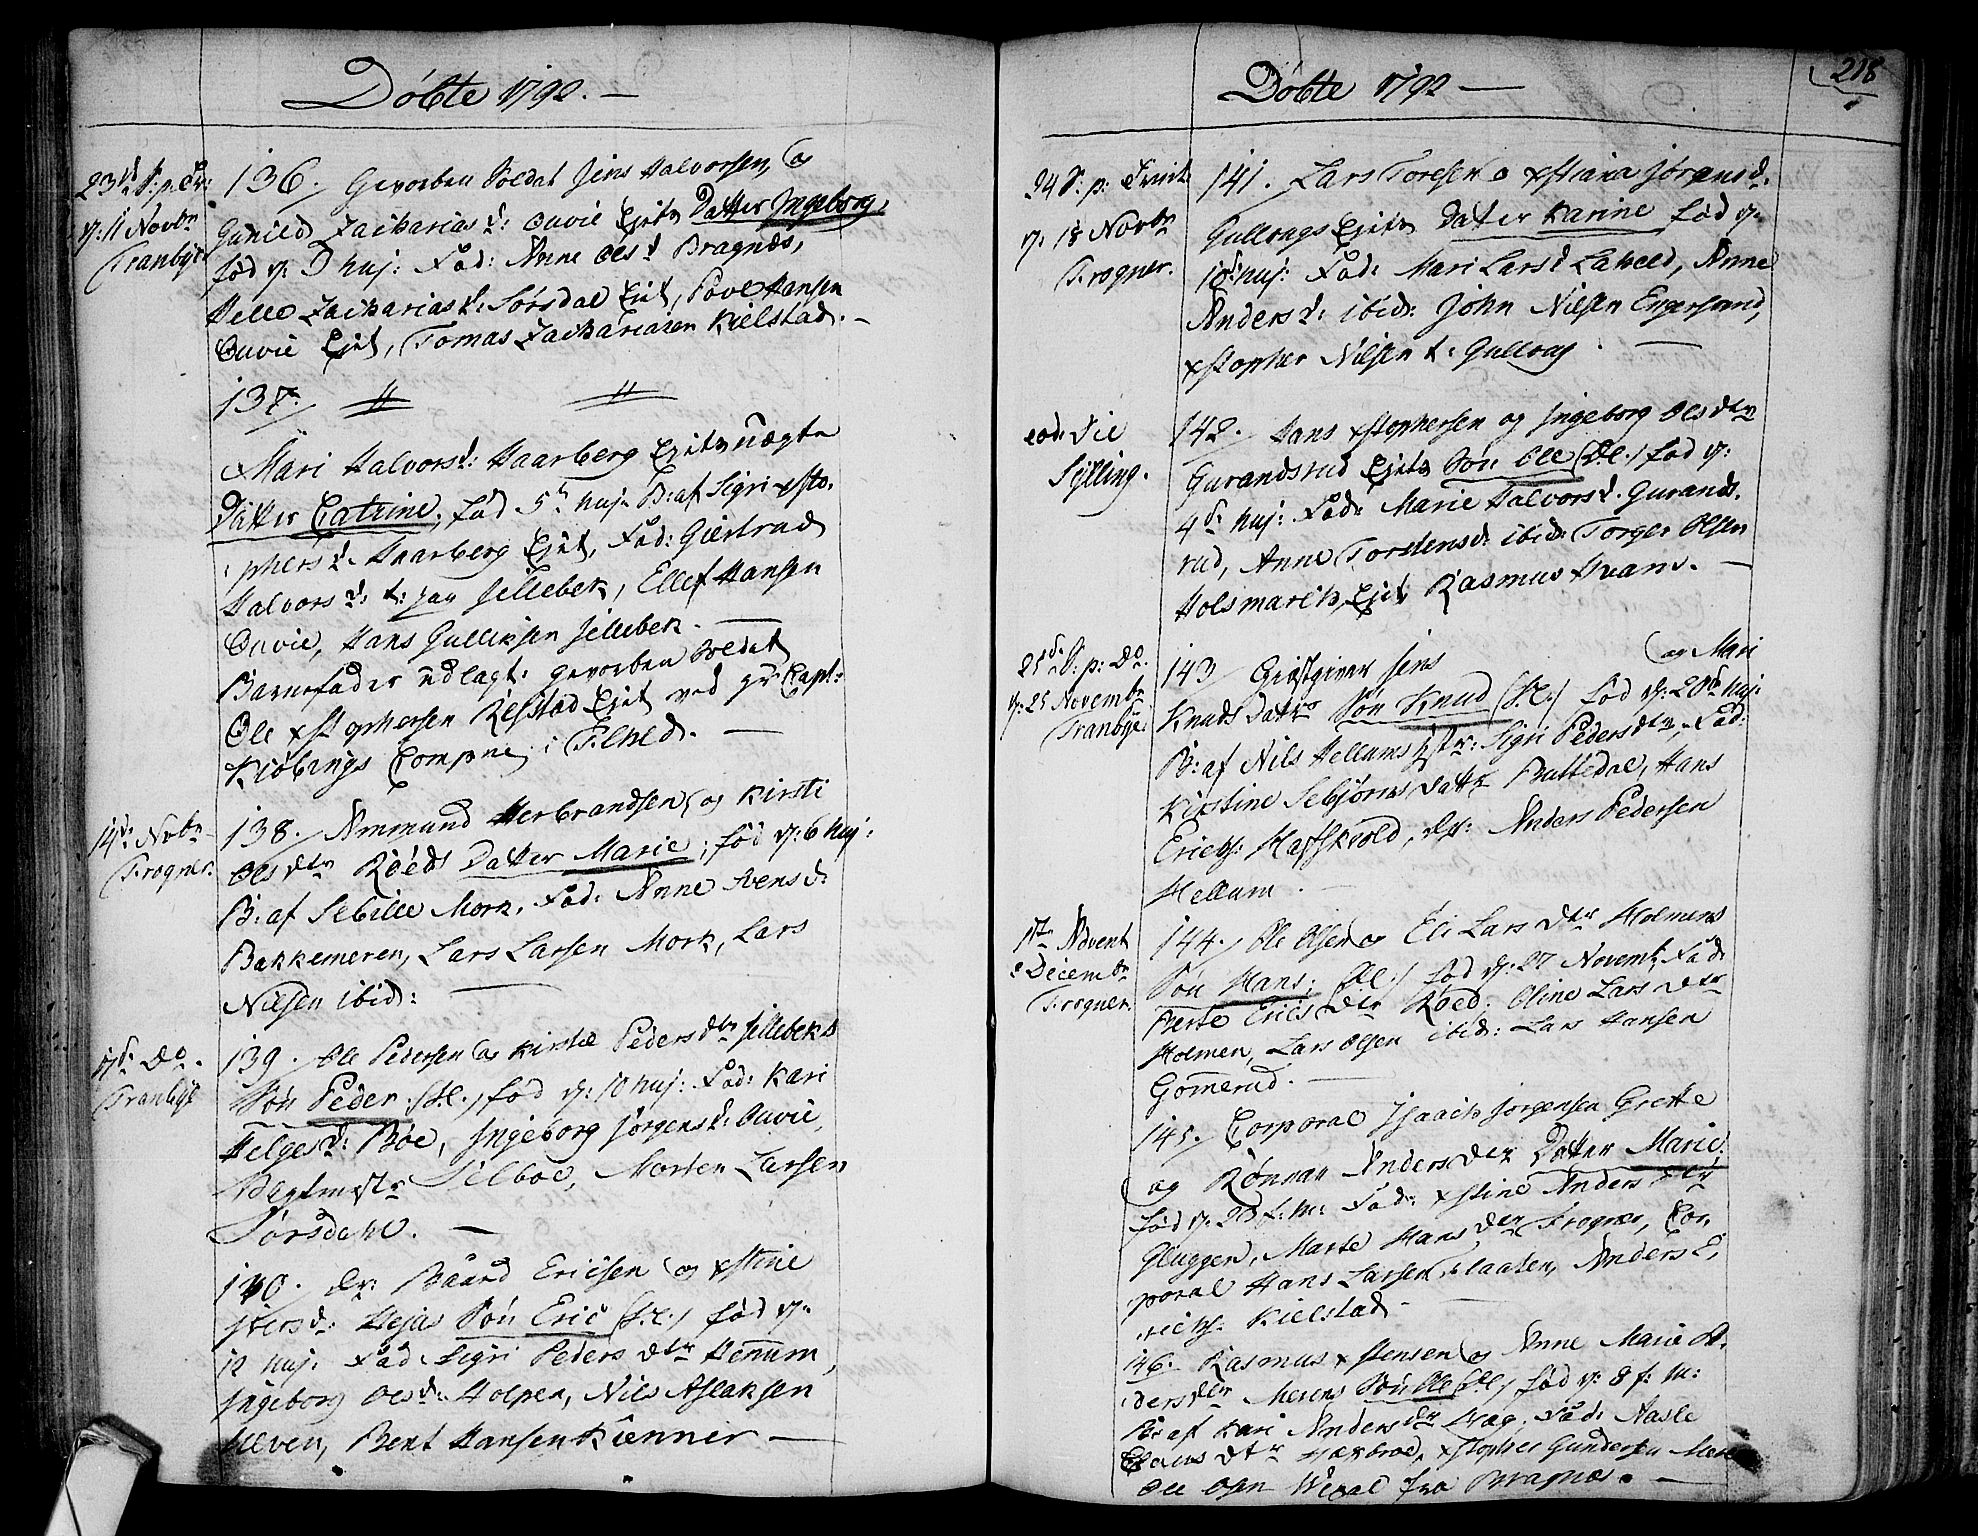 Döbte 1792. —
23d S: p: Tr:
d: 11 Novbr
Tranbye
136. Gevorben Soldat Jens Halvorsen, og
Gunild Zachariasd: Ouvie Ejets Datter Ingeborg,
fød d: D huj: Fad: Anne Olsd Bragnæs,
Helle Zachariasd: Sørsdal Ejet, Povel Hansen
Ouvie Ejet, Tomas Zachariasen Kielstad. —
137. // //
Mari Halvorsd: Haarberg Ejets uægte
Datter Catrine, fød 5te huj: B: af Sigri Xsto-
phersd: Haarberg Ejet, Fad: Giertrud
Halvorsd: t: paa Jellebek, Ellef Hansen
Ouvie, Hans Gulliksen Jellebek. —
Barnefader udlagt: gevorben Soldat
Ole Xstophersen Ejet ved Capt:
Kiöbings Compne i —
14de Novbr
Trogner.
138. Ammund Herbrandsen og Kirsti
Olsdtr Röeds Datter Marie, fød d: 6 huj:
B: af Sebille Mork. Fad: Anne Ivensd:
Bakkemeren, Lars Larsen Mork, Lars
Nilsen ibid: —
17de Do.
Tranbye
139. Ole Pedersen og Kirstie Pedersdtr Jellebeks
Søn Peder (S:C:) fød d: 10 huj: Fad: Kari
Helgesd: Böe, Ingeborg Jörgensd: Ouvie,
Vegtmstr Silboe, Morten Larsen
Sørsdahl. —
140. Baard Ericsen og Xstine
Iversd: Hejas Søn Eric (S:C:) fød d:
12 huj: Fad: Sigri Pedersdtr Henum,
Ingeborg Olsd: Holpen, Nils Aslaksen
Ulven, Bent Hansen Kienner —
Döbte 1792 —
218
24 S: p: Trinit
d: 18 Novbr
Trogner.
141. Lars Toresen o Xstiana Jörgensd.
Gullougs Ejets Datter Karine fød d:
10de huj: Fad: Mari Larsd Lahell, Anne
Andersd: ibid: John Nilsen Engersand,
Xstopher Nilsen t: Gulloug. —
eod: Die
Sylling.
142. Hans Xstophersen og Ingeborg Olsdtr
Gurandsrud Ejets Søn Ole (S:C:) fød d:
4de huj: Fad: Marie Halvorsd. Gurands-
rud, Anne Torstensd: ibid: Torger Olsen
Holsmark, Ejet Rasmus Svans. —
25de S: p: Do.
d: 25 Novembr
Tranbye.
143. Giestgiver Jens og Mari
Knuds Datrs Søn Knud (S:C:) fød d: 20de huj:
B: af Nils Hellums Hstr: Sigri Pedersdtr, Fad:
Kirstine Sebjörns Datter Buttedal, Hans
Erichs: Haffskiold, Anders Pedersen
Hellum. —
1te Advent
2 Decembr
Trogner.
144. Ole Olsen og Eli Larsdtr Holmens
Søn Hans, (S:C:) fød d: 27 Novemb, Fad:
Berte Ericsdtr Röed, Oline Larsdtr
Holmen, Lars Olsen ibid: Lars Hansen
Gomerud. —
145. Corporal Isaach Jörgensen Grette
og Rönnau Andersdtr Datter Marie,
fød d: 23 f: M: Fad: Xstine Andersdtr
Gluggen, Marte Hansdtr Trogner, Cor-
poral Hans Larsen Flaaten, Anders E-
richs. Kielstad. —
146. Rasmus Xstensen og Anne Marie An-
dersdtr Merens Søn Ole (S:C:) fød d: 8 f: M:
B: af Kari Andersdtr Fad: Aasle
Clausdtr Xstopher Gundersen
Ole Olsen fra Bragnæs. —